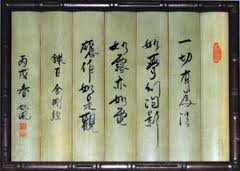 一切有為法
如夢幻泡影
如露亦如電
應作如是觀
錄自金剛經
丙戌春